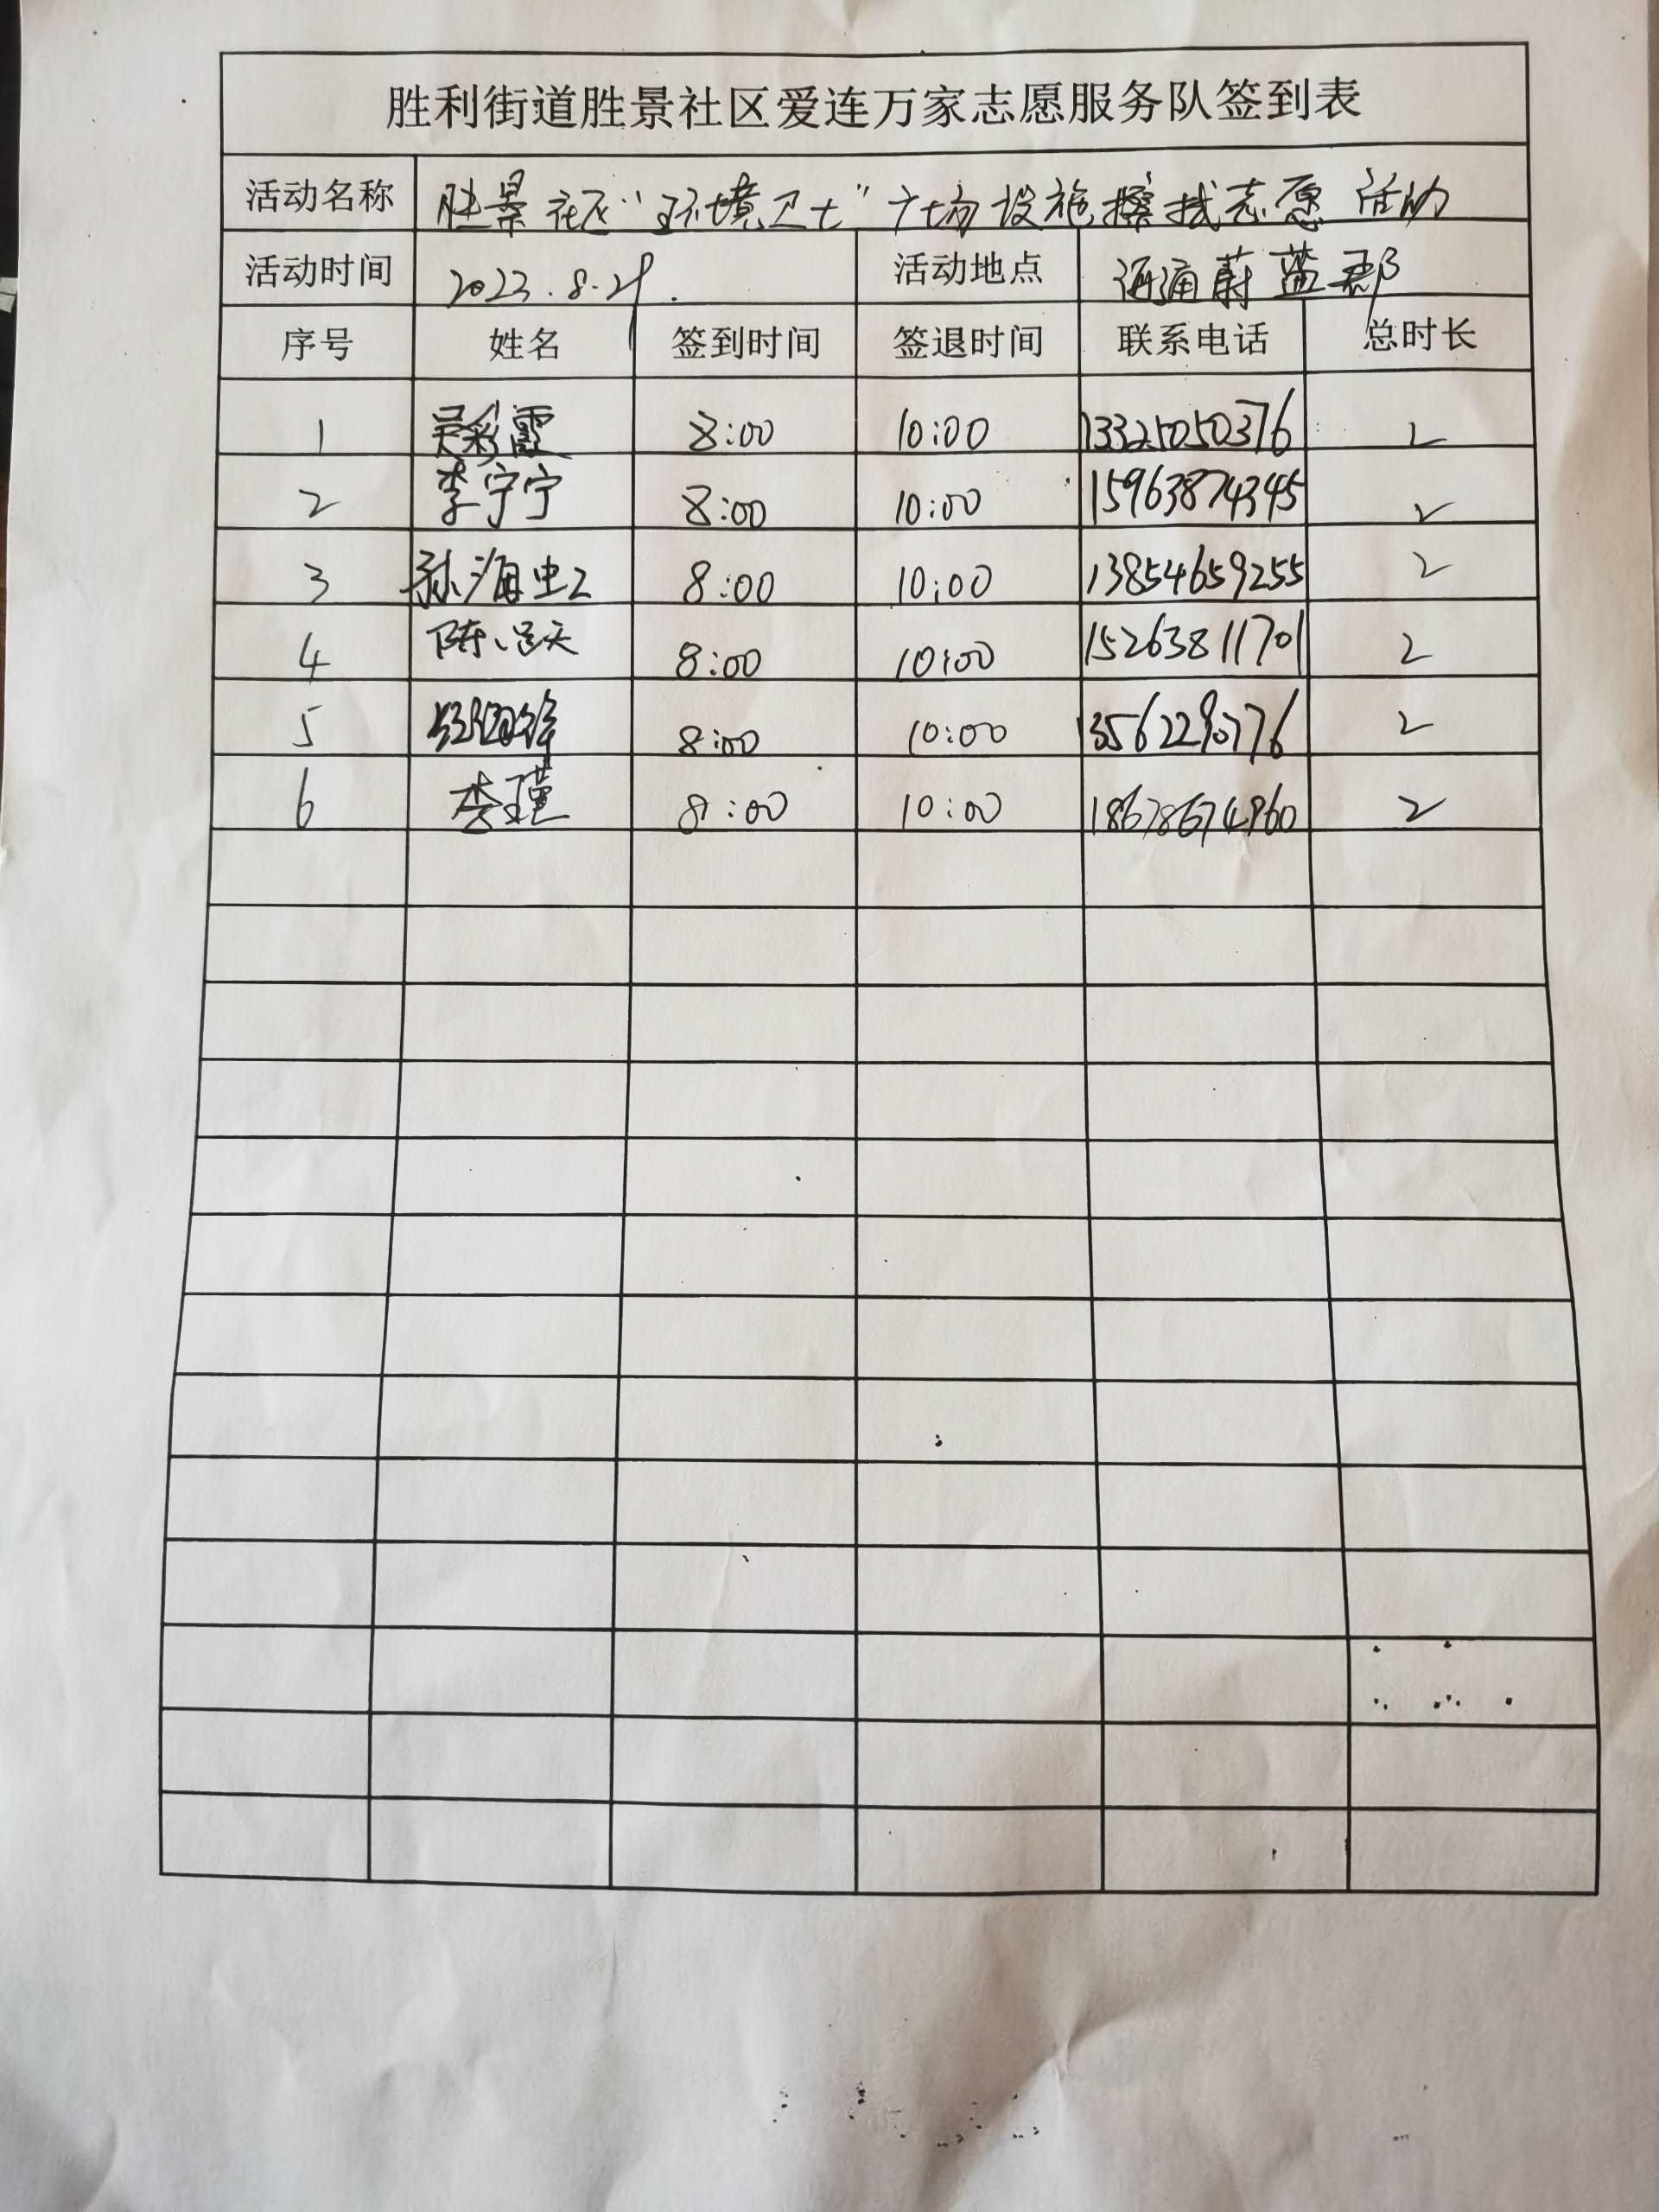 胜利街道胜景社区爱连万家志愿服务队签到表
活动名称 胜景社区“环境卫士”广场设施擦拭志愿活动
活动时间 2023.8.29. 活动地点 海通蔚蓝郡
序号 姓名 签到时间 签退时间 联系电话 总时长
1 吴彩霞 8:00 10:00 13325050376 2
2 李宁宁 8:00 10:00 15963874345 2
3 孙海虹 8:00 10:00 13854659255 2
4 陈 8:00 10:00 15263811701 2
5 8:00 10:00 13562290776 2
6 李瑾 8:00 10:00 18678674960 2